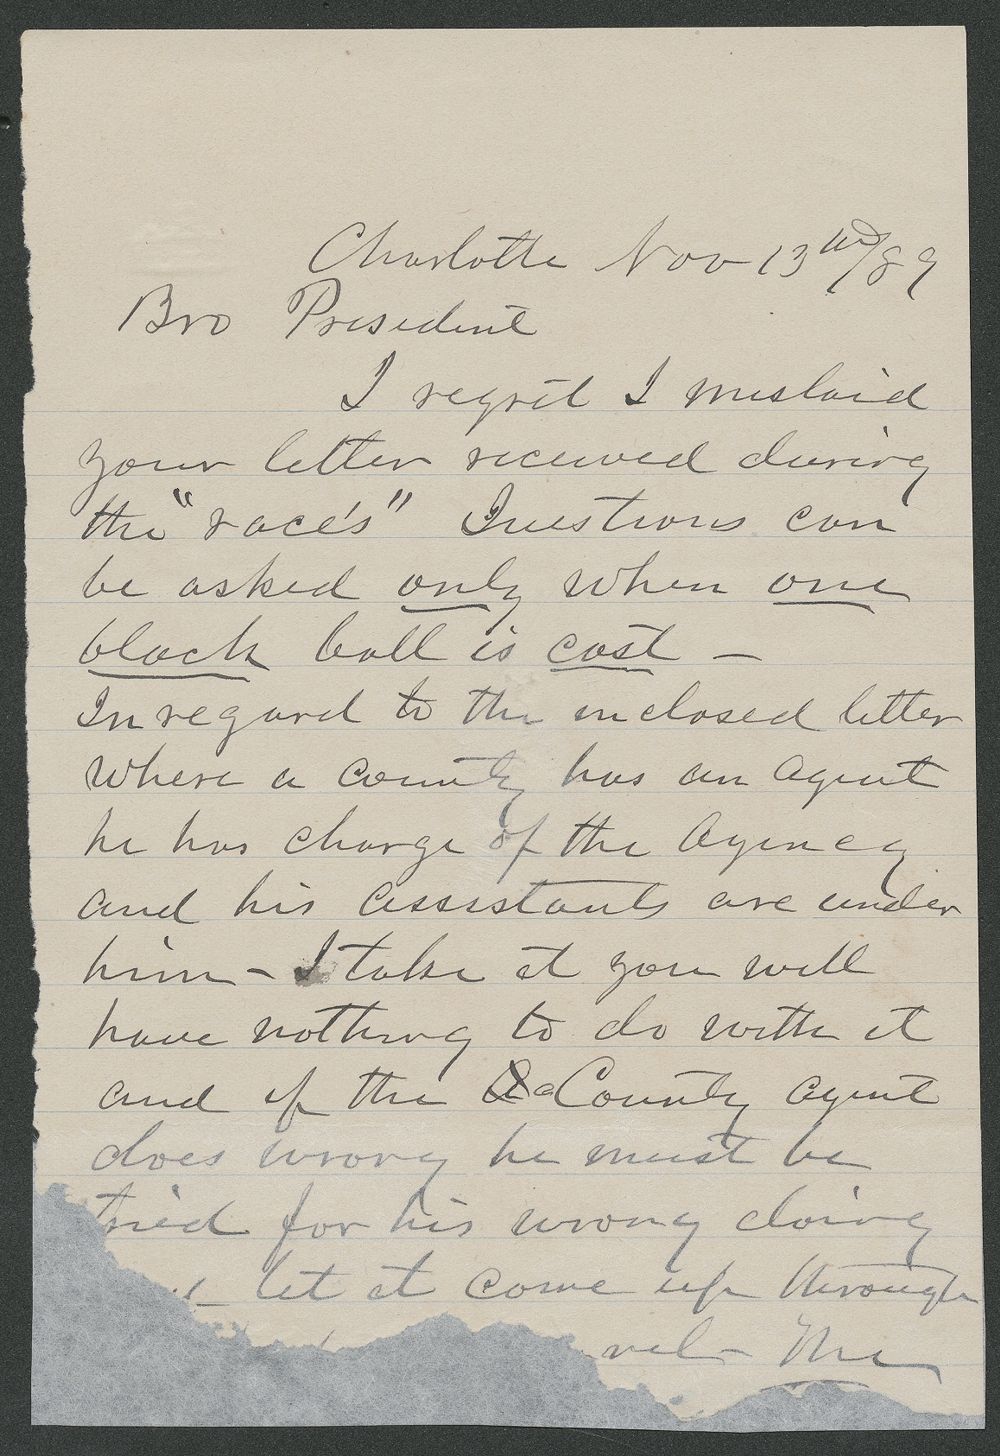 Charlotte Nov 13th/89
Bro President
I regret I mislaid
your letter received during
the "race's" Questions can
be asked only when one
black ball is cast —
In regard to the inclosed letter
Where a county has an agent
he has charge of the Agency
and his assistants are under
him - I take it you will
have nothing to do with it
and if the County agent
does wrong he must be
tried for his wrong doing
let it come up through
The